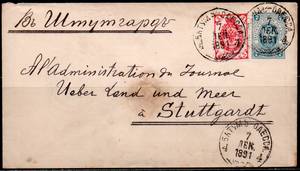 Въ Штутгардъ
A l'Administration du Journal
Ueber Land und Meer
à Stuttgardt
7
ДЕК.
1891
7
ДЕК.
1891
7
ДЕК.
1891
4